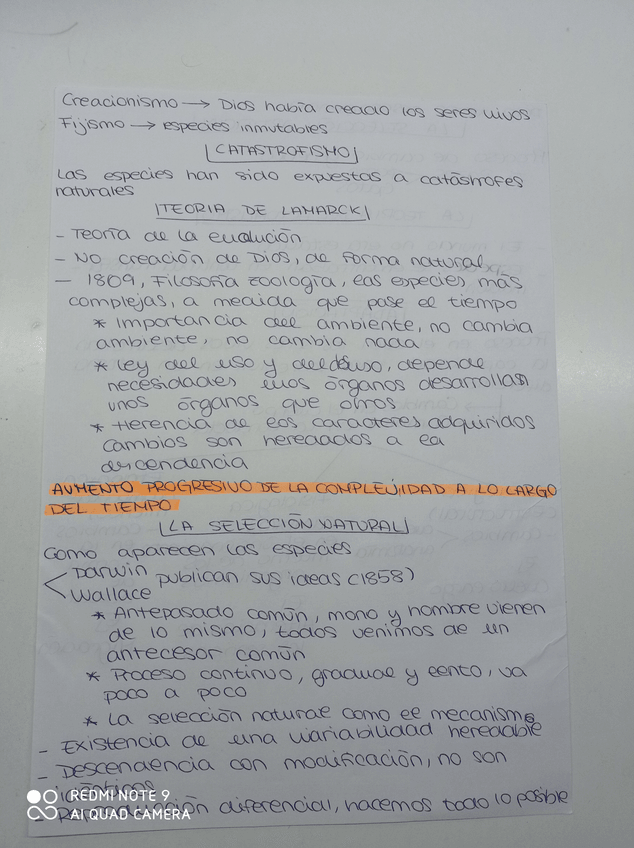 Creacionismo → Dios había creado los seres vivos
Fijismo → especies inmutables
CATASTROFISMO
Las especies han sido expuestas a catástrofes
naturales
TEORIA DE LAMARCK
- Teoría de la evolución
- No creación de Dios, de forma natural
- 1809, Filosofía zoología, las especies más
complejas, a medida que pase el tiempo
* Importancia del ambiente, no cambia
ambiente, no cambia nada
* Ley del uso y del desuso, depende
necesidades ellos órganos desarrollan
unos órganos que otros
* Herencia de los caracteres adquiridos
cambios son heredados a la
descendencia
AUMENTO PROGRESIVO DE LA COMPLEJIDAD A LO LARGO
DEL TIEMPO
LA SELECCIÓN NATURAL
Como aparecen las especies
Darwin
Wallace
publican sus ideas (1858)
* Antepasado común, mono y hombre vienen
de lo mismo, todos venimos de un
antecesor común
* Proceso continuo, gradual y lento, va
poco a poco
* La selección natural como el mecanismo
- Existencia de una variabilidad heredable
- Descendencia con modificación, no son
idénticos
- Reproducción diferencial, hacemos todo lo posible
REDMI NOTE 9
AI QUAD CAMERA